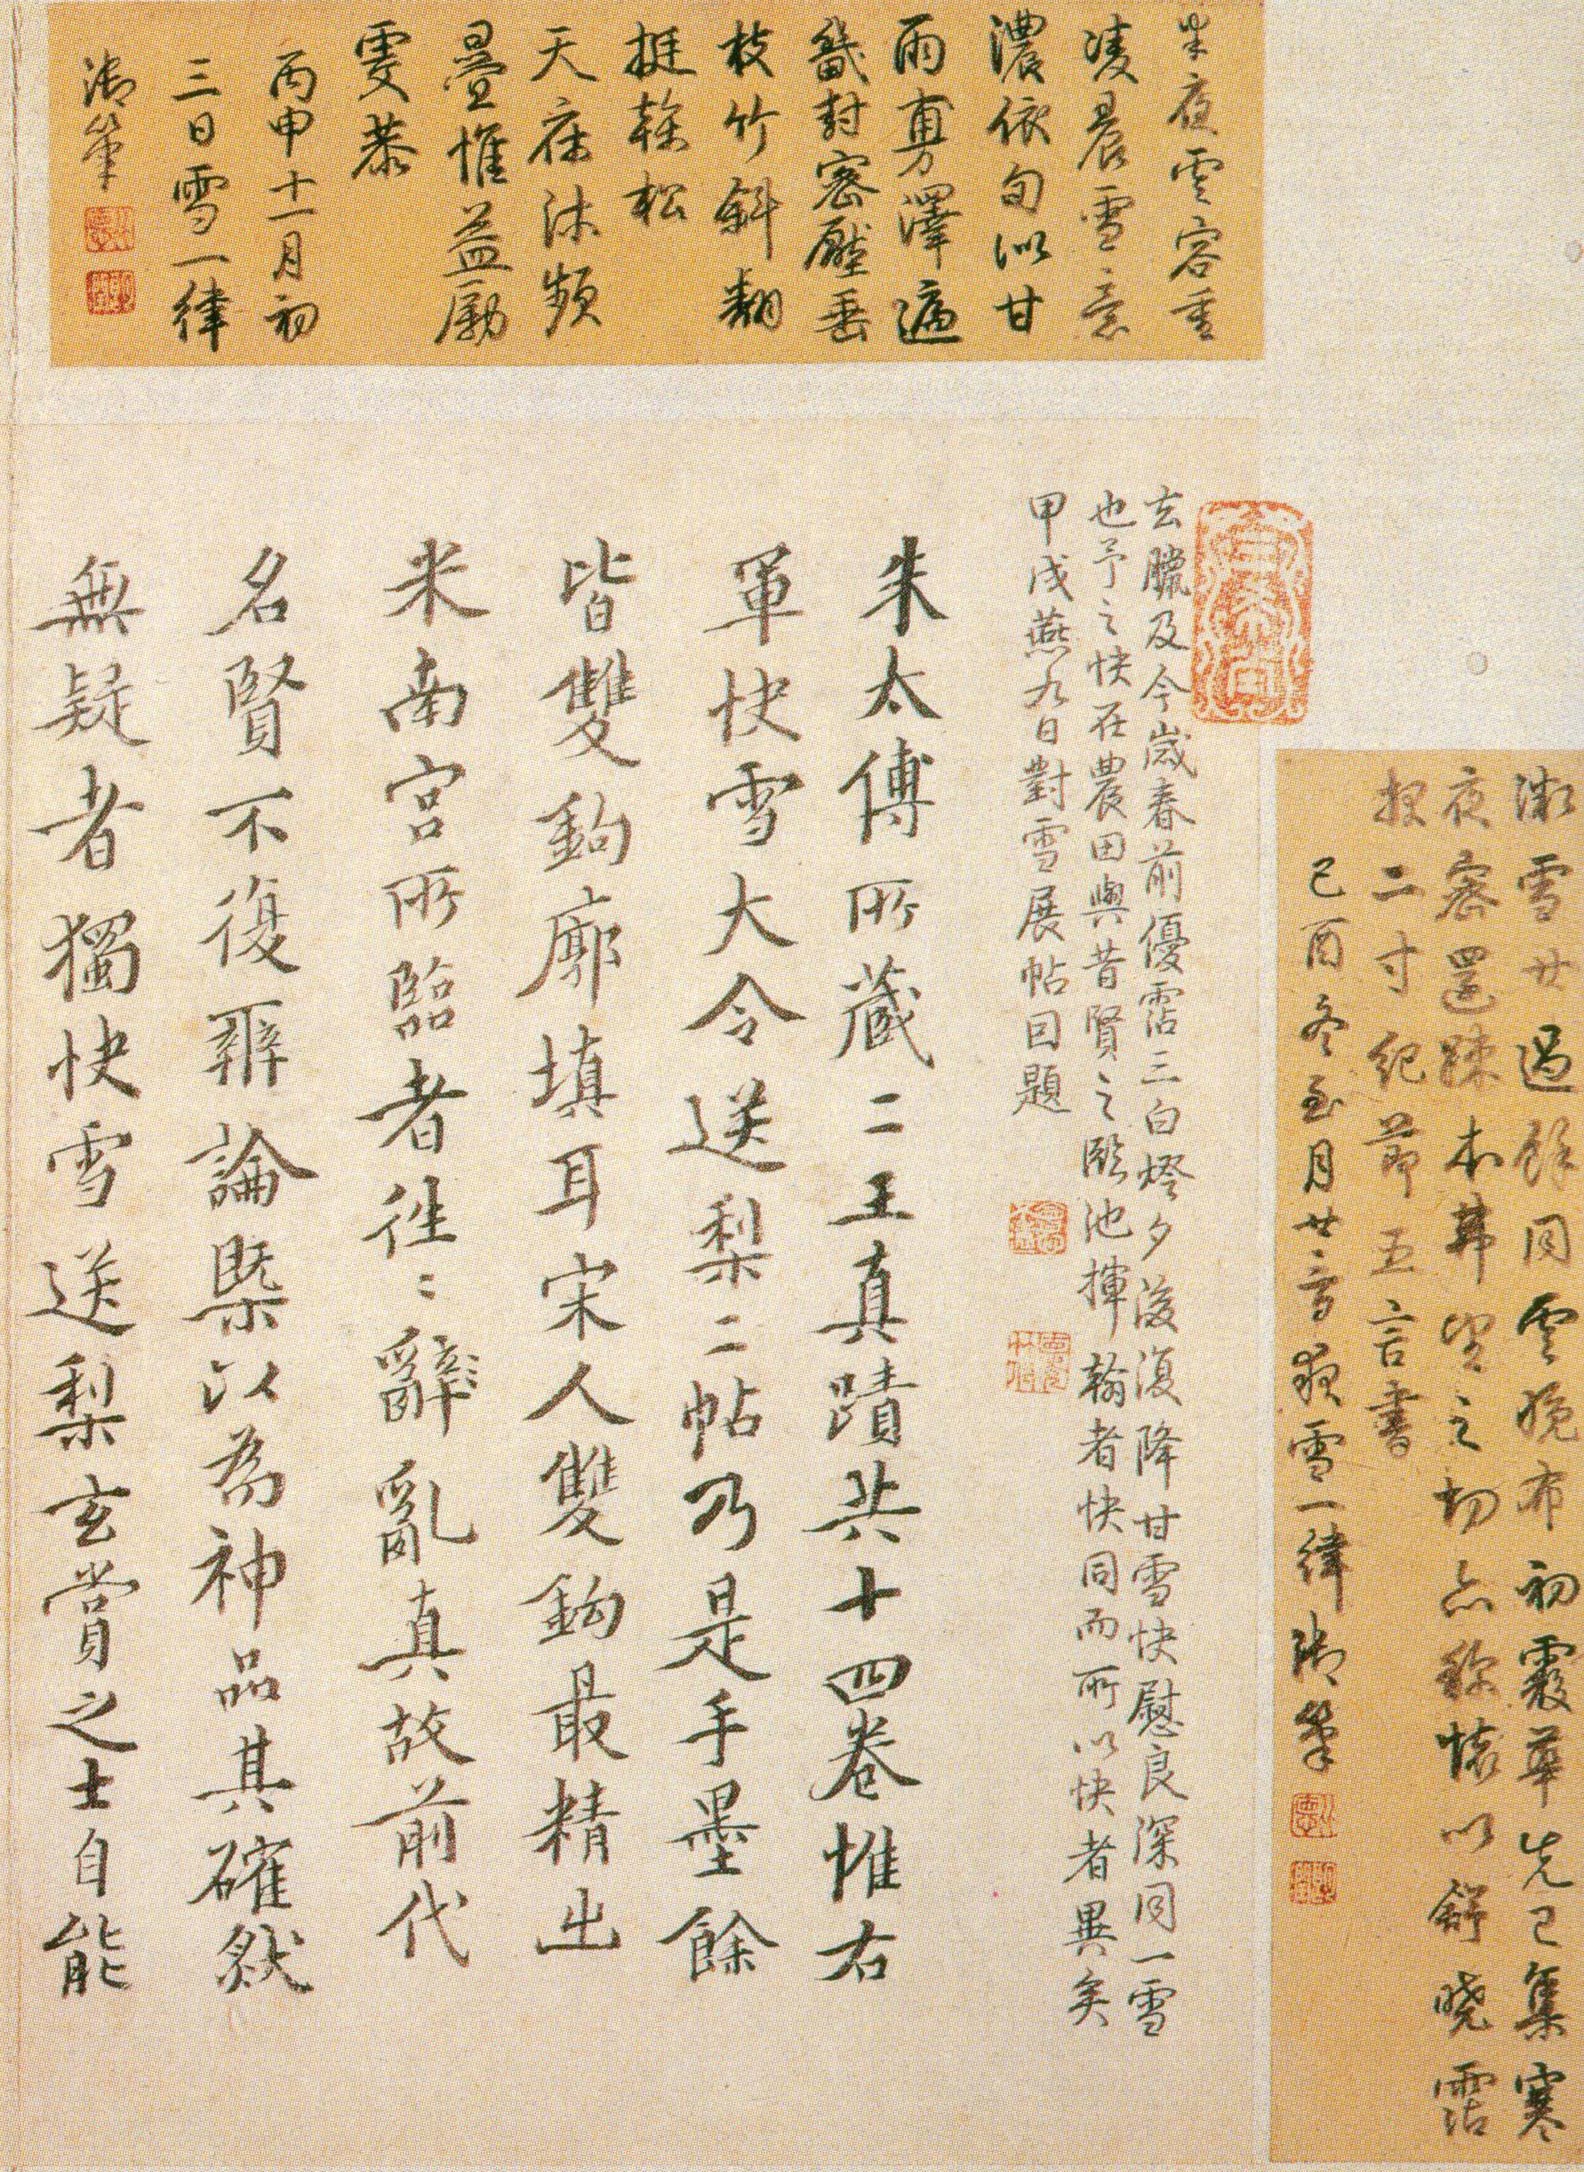 半夜雲容重
凌晨雪意
濃依旬沁甘
雨専澤遍
畿封密壓垂
枝竹斜翻
挺榦松
天庥沐頻
疊惟益勵
雯恭
丙申十一月初
三日雪一律
御筆
微雪廿過餘同雲晚布初霰華先已集寒
夜密還踈本莽望之切亦稱懷以舒曉霑
報二寸紀節五言書
己酉冬至月廿六日夜雪一律御筆
玄臘及今歲春前優霑三白燈夕後復降甘雪快慰良深同一雪
也予之快在農田與昔賢之臨池揮翰者快同而所以快者異矣
甲戌燕九日對雪展帖因題
朱太傅所藏二王真蹟共十四卷惟右
軍快雪大令送梨二帖乃是手墨餘
皆雙鉤廓填耳宋人雙鉤最精出
米南宮所臨者往〻辭亂真故前代
名賢不復辨論槩以為神品其確然
無疑者獨快雪送梨玄賞之士自能